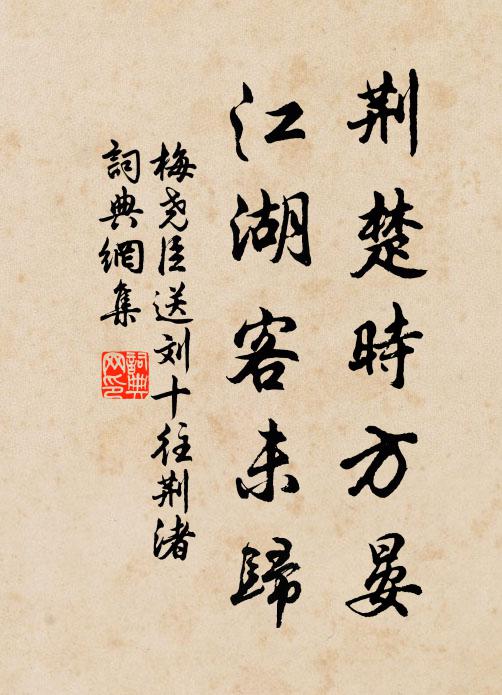 荆楚時方晏
江湖客未歸
梅尧臣送刘十往荆渚
詞典網集
詞典网印